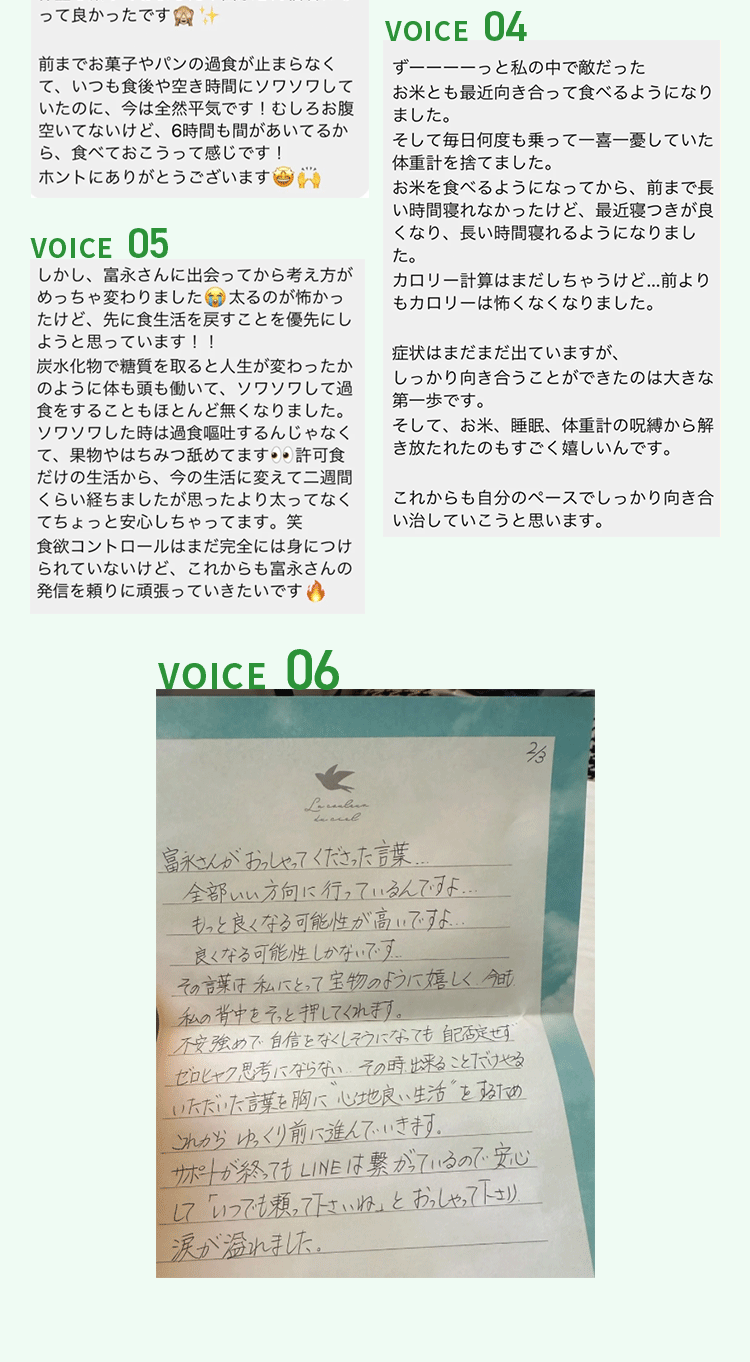 って良かったです🙈✨
前までお菓子やパンの過食が止まらなく
て、いつも食後や空き時間にソワソワして
いたのに、今は全然平気です！むしろお腹
空いてないけど、6時間も間があいてるか
ら、食べておこうって感じです！
ホントにありがとうございます🤩🙌
VOICE 04
ずーーーーっと私の中で敵だった
お米とも最近向き合って食べるようになり
ました。
そして毎日何度も乗って一喜一憂していた
体重計を捨てました。
お米を食べるようになってから、前まで長
い時間寝れなかったけど、最近寝つきが良
くなり、長い時間寝れるようになりまし
た。
カロリー計算はまだしちゃうけど...前より
もカロリーは怖くなくなりました。
症状はまだまだ出ていますが、
しっかり向き合うことができたのは大きな
第一歩です。
そして、お米、睡眠、体重計の呪縛から解
き放たれたのもすごく嬉しいんです。
これからも自分のペースでしっかり向き合
い治していこうと思います。
VOICE 05
しかし、富永さんに出会ってから考え方が
めっちゃ変わりました😭太るのが怖かっ
たけど、先に食生活を戻すことを優先にし
ようと思っています！！
炭水化物で糖質を取ると人生が変わったか
のように体も頭も働いて、ソワソワして過
食をすることもほとんど無くなりました。
ソワソワした時は過食嘔吐するんじゃなく
て、果物やはちみつ舐めてます👀許可食
だけの生活から、今の生活に変えて二週間
くらい経ちましたが思ったより太ってなく
てちょっと安心しちゃってます。笑
食欲コントロールはまだ完全には身につけ
られていないけど、これからも富永さんの
発信を頼りに頑張っていきたいです🔥
VOICE 06
2/3
La couleur
du ciel
富永さんがおっしゃってくださった言葉...
全部いい方向に行っているんですよ...
もっと良くなる可能性が高いですよ...
良くなる可能性しかないです...
その言葉は私にとって宝物のように嬉しく
私の背中をそっと押してくれます。
不安強めで自信をなくしそうになっても 自己否定せず
ゼロヒャク思考にならない その時出来ることだけやる
いただいた言葉を胸に"心地良い生活"をするため
これから ゆっくり前に進んでいきます。
サポートが終ってもLINEは繋がっているので安心
して「いつでも頼って下さいね」とおっしゃって下さり
涙が溢れました。